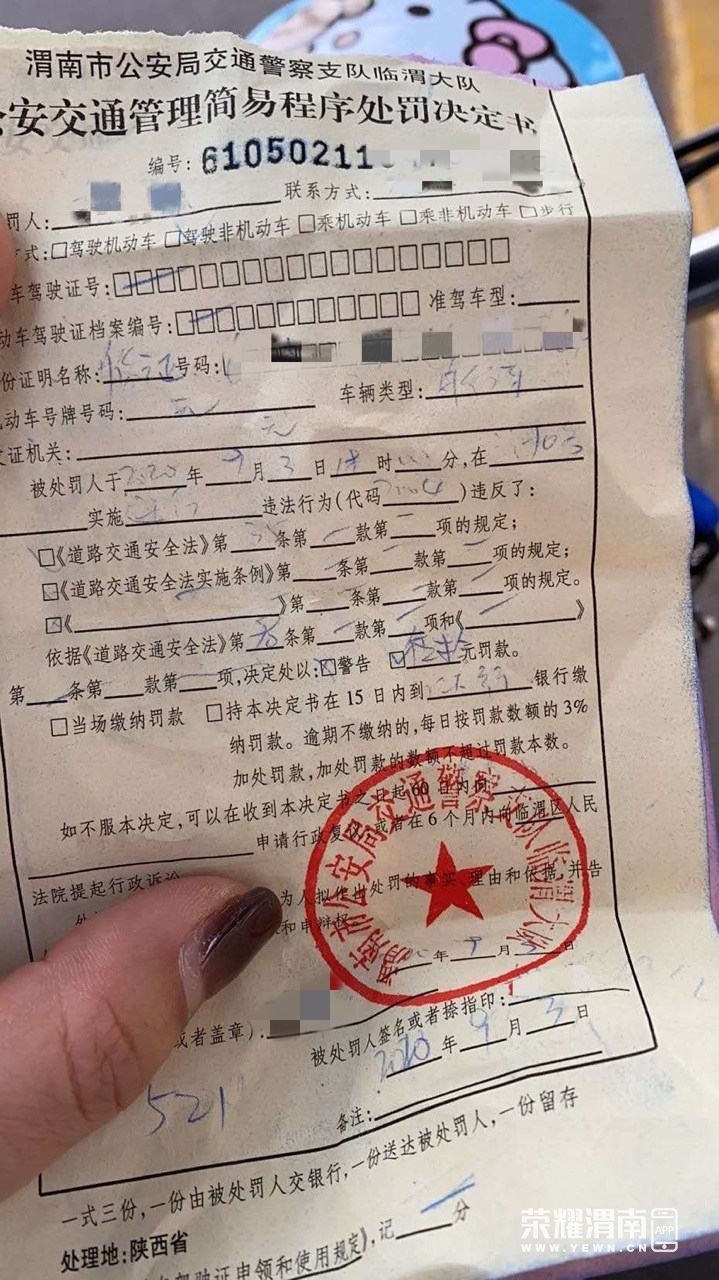 渭南市公安局交通警察支队临渭大队
安交通管理简易程序处罚决定书
编号：61050211
罚人： 联系方式：
式：□驾驶机动车 □驾驶非机动车 □乘机动车 □乘非机动车 □步行
车驾驶证号：
动车驾驶证档案编号： 准驾车型：
份证明名称： 号码：
车辆类型：自行车
动车号牌号码：无
证机关：无
被处罚人于2020年9月3日 时 分，在
实施 违法行为（代码 ）违反了：
□《道路交通安全法》第 条第 款第 项的规定；
□《道路交通安全法实施条例》第 条第 款第 项的规定；
□《 》第 条第 款第 项的规定。
依据《道路交通安全法》第 条第 款第 项和《 》
第 条第 款第 项，决定处以：□警告 □ 元罚款。
□当场缴纳罚款 □持本决定书在15日内到 银行缴
纳罚款。逾期不缴纳的，每日按罚款数额的3%
加处罚款，加处罚款的数额不超过罚款本数。
如不服本决定，可以在收到本决定书之日起60日内向
申请行政复议；或者在6个月内向临渭区人民
法院提起行政诉讼
为人拟作出处罚的事实、理由和依据，并告
和申辩权
渭南市公安局交通警察支队临渭大队
年9月3日
或者盖章）：
被处罚人签名或者捺指印：
2020年9月3日
521
备注：
一式三份，一份由被处罚人交银行，一份送达被处罚人，一份留存
处理地：陕西省
驾驶证申领和使用规定》，记 分
荣耀渭南 APP
WWW.YEWN.CN